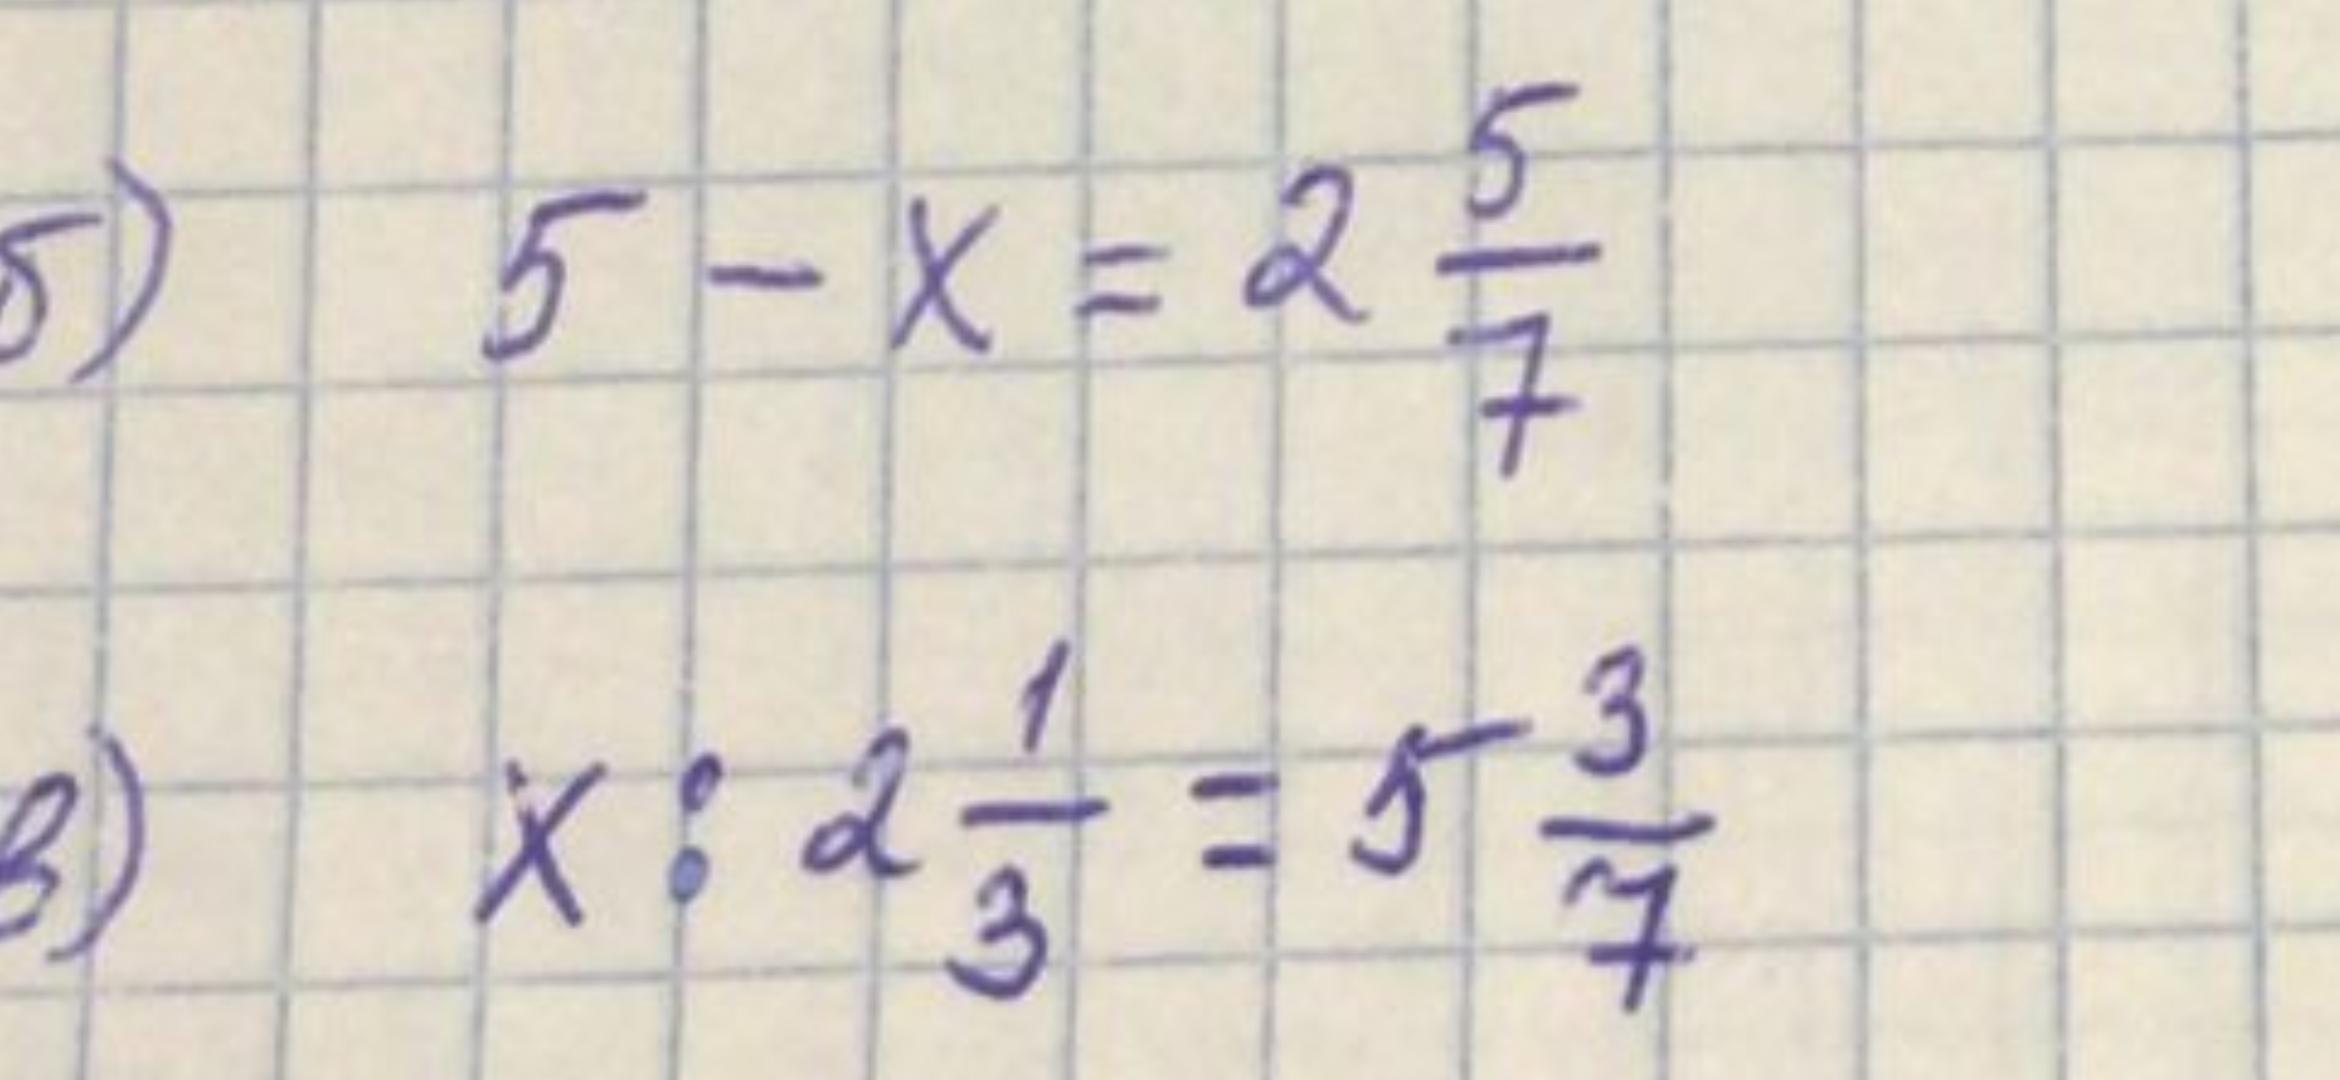 б) 5 - x = 2 5/7
в) x : 2 1/3 = 5 3/7